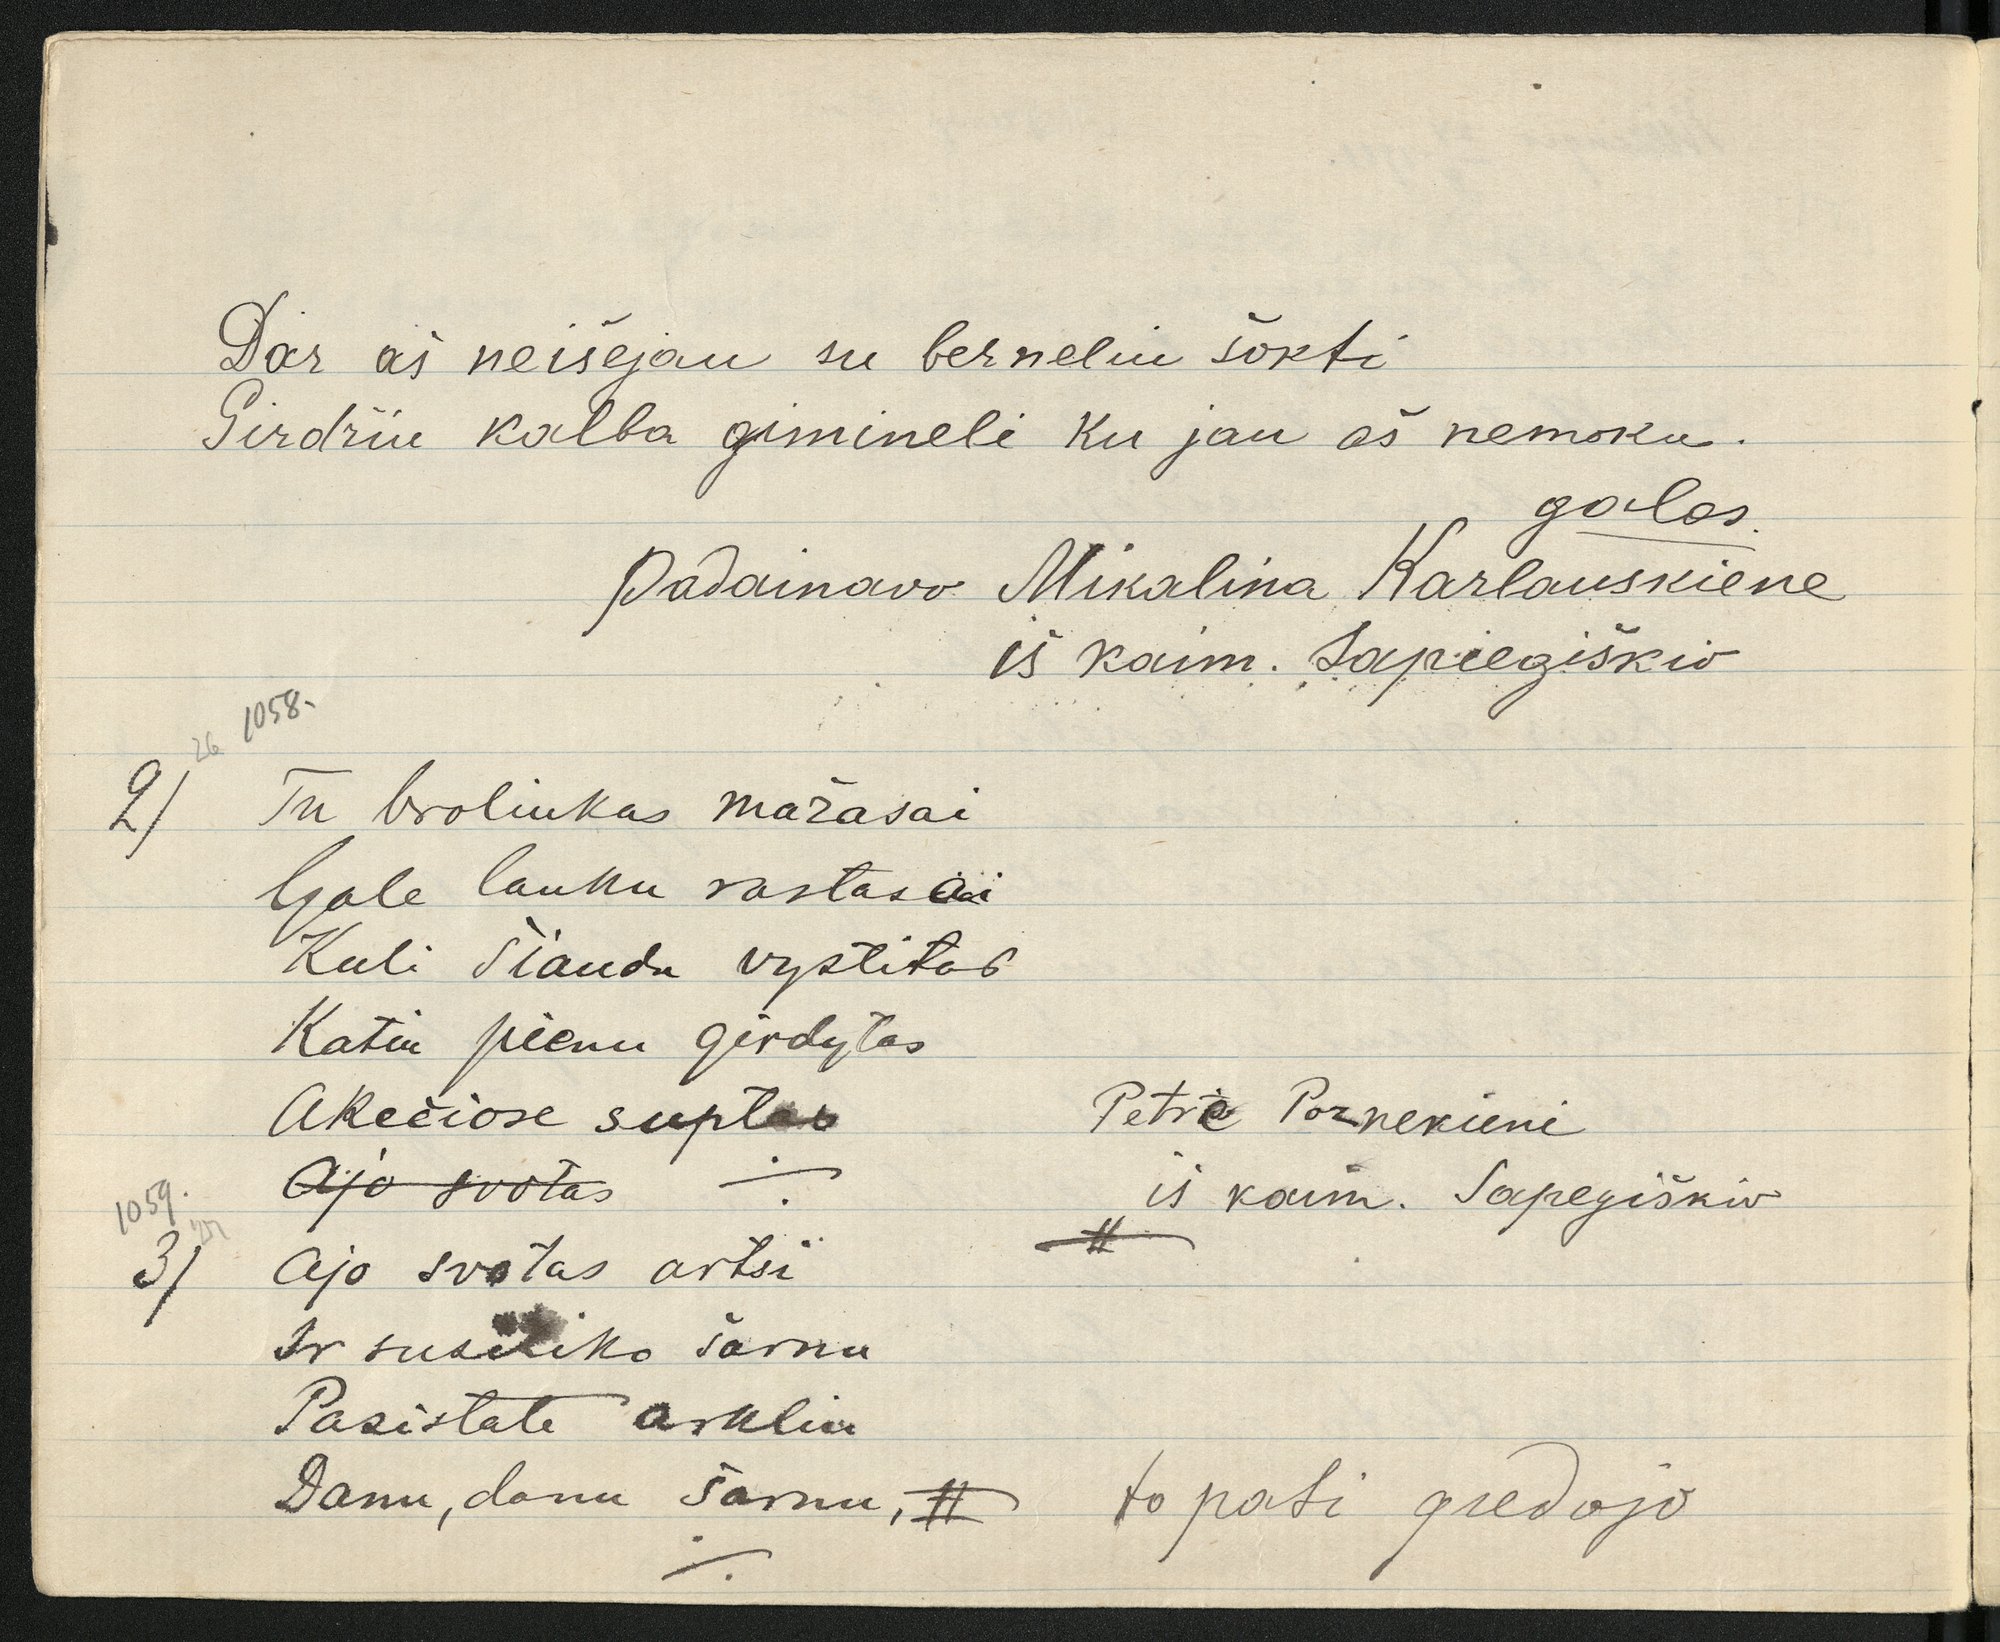 Dar aš neišejau su berneliu šokti
Girdžiu kalba gimineli ku jau aš nemoku.
galas.
Padainavo Mikalina Karlauskiene
iš kaim. Sapiegiškiu
26 1058.
2) Tu broliukas mažasai
Gale lauku rastasai
Kuli šiaudu vystitas
Katiu pienu girdytas
Akečiose suptas
Ajo svotas
Petrie Pornekieni
iš kaim. Sapegiškiu
1059.
3) Ajo svotas artsi
Ir susitiko šarnu
Pasistate arkliu
Danu, danu šarnu,
to pati giedojo